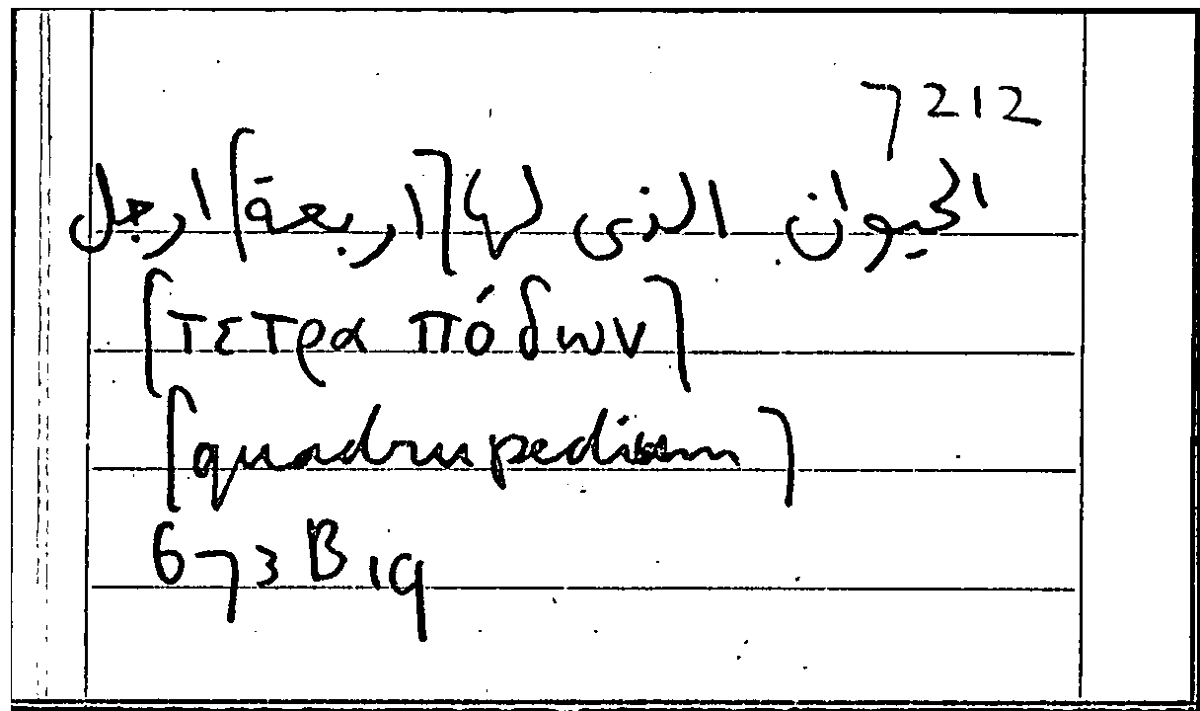 7212
الحيوان الذى له [اربعة] ارجل
[τετρα πόδων]
[quadrupedium]
673 B 19